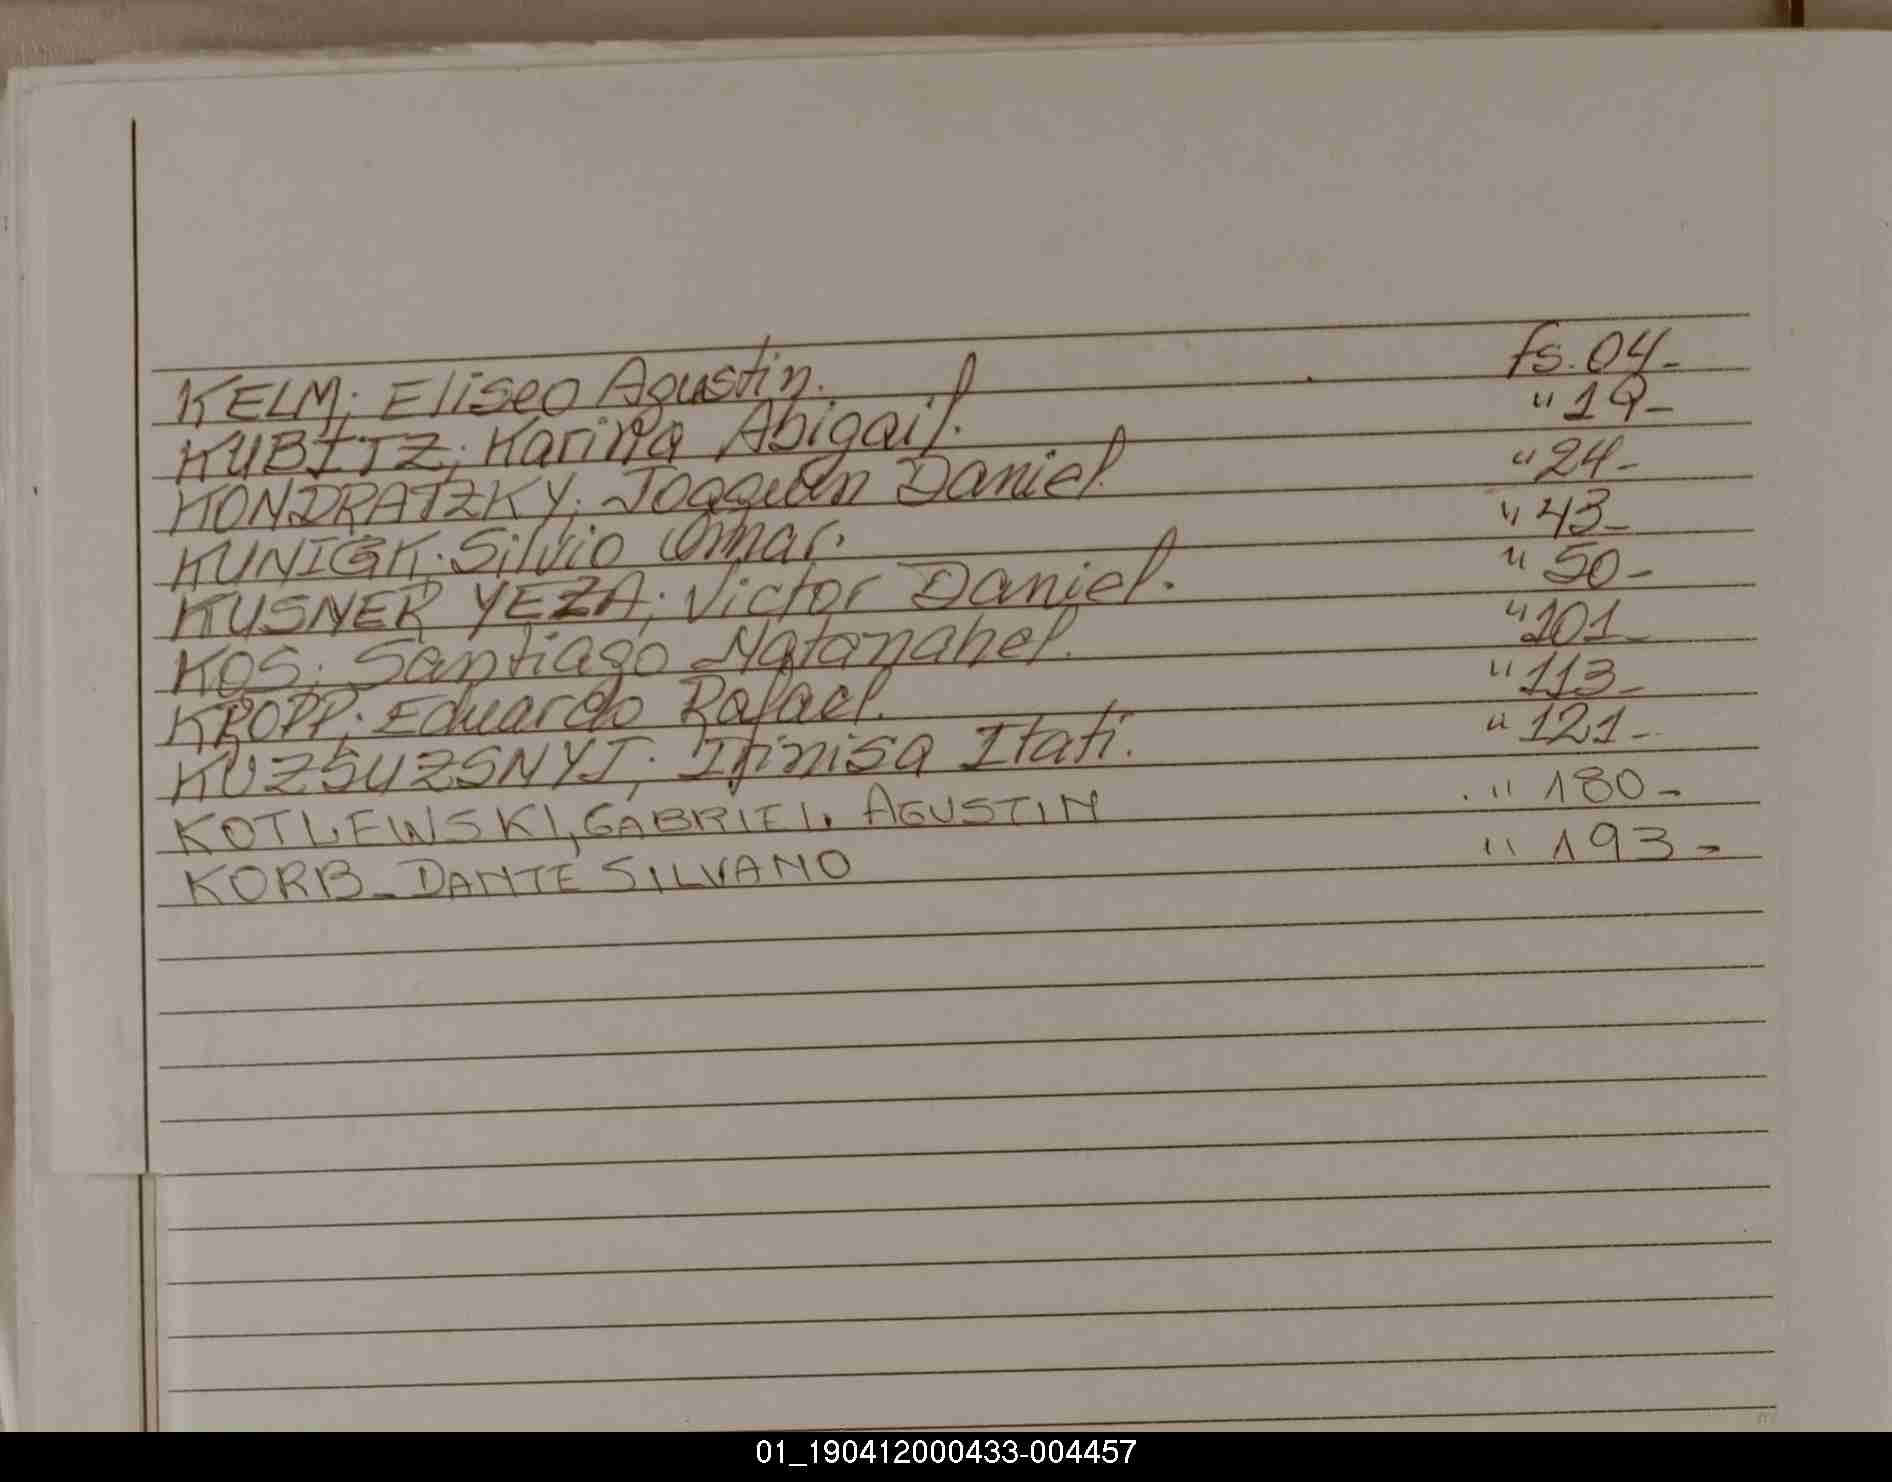 KELM; Eliseo Agustin. fs. 04-
KUBITZ; Karina Abigail. " 19-
KONDRATZKY; Joaquin Daniel. " 24-
KUNIGK; Silvio Omar. " 43-
KUSNER YEZA; Victor Daniel. " 50-
KOS; Santiago Natanahel. " 101-
KROPP; Eduardo Rafael. " 113-
KUZSUZSNYI; Itatí. " 121-
KOTLEWSKI, GABRIEL AGUSTIN " 180-
KORB- DANTE SILVANO " 193-
01_190412000433-004457